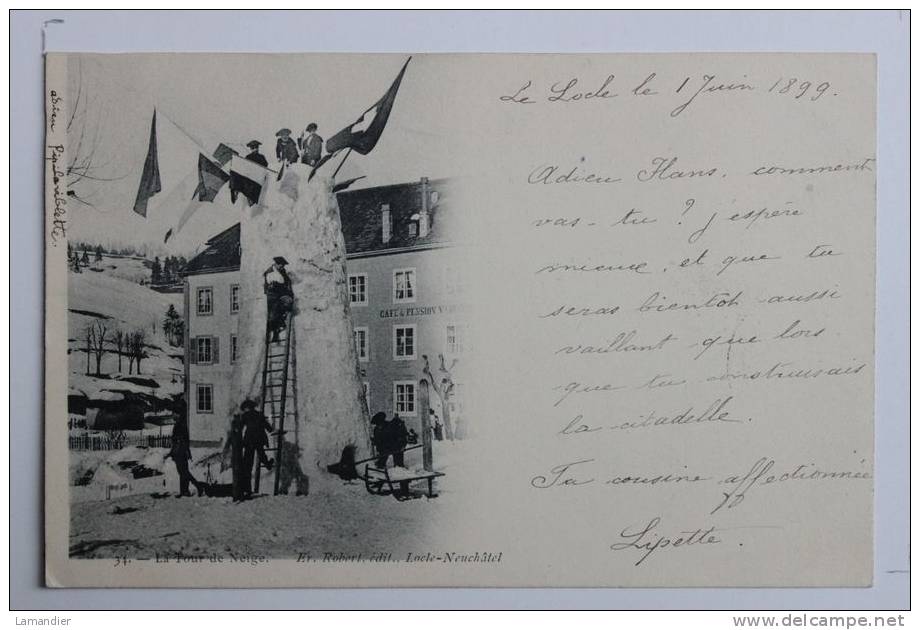 Le Locle le 1 Juin 1899.
Adieu Hans, comment
vas-tu? j'espère
mieux, et que tu
seras bientôt aussi
vaillant que lors
que tu construisais
la citadelle.
Ta cousine affectionnée
Lipette.
adieu
CAFÉ & PENSION
34. — La Tour de Neige. Er. Robert, édit., Locle-Neuchâtel
Lamandier
www.delcampe.net